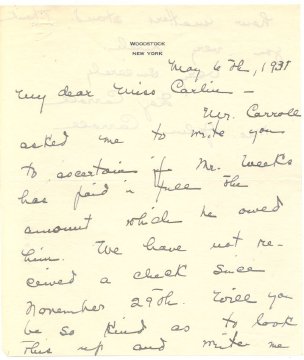 WOODSTOCK
NEW YORK
May 6th, 1931
My dear Miss Carlin -
Mr. Carroll
asked me to write you
to ascertain if Mr. Weeks
has paid in full the
amount which he owed
him. We have not re-
ceived a check since
November 29th. Will you
be so kind as to look
this up and write me